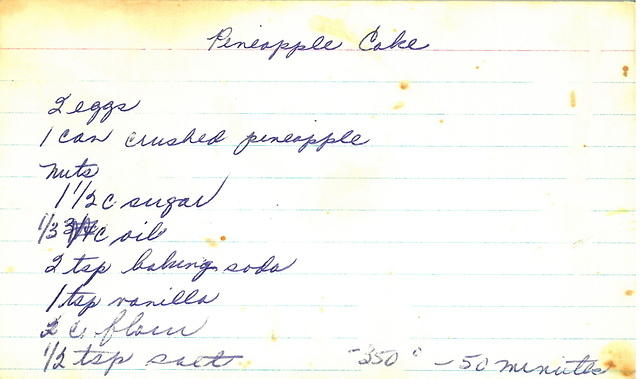 Pineapple Cake
2 eggs
1 can crushed pineapple
nuts
1 1/2 c sugar
1/3 c oil
2 tsp baking soda
1 tsp vanilla
2 c. flour
1/2 tsp salt -350° - 50 minutes